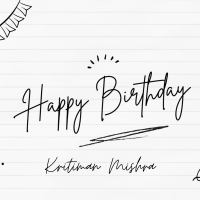 Happy Birthday
Kritiman Mishra